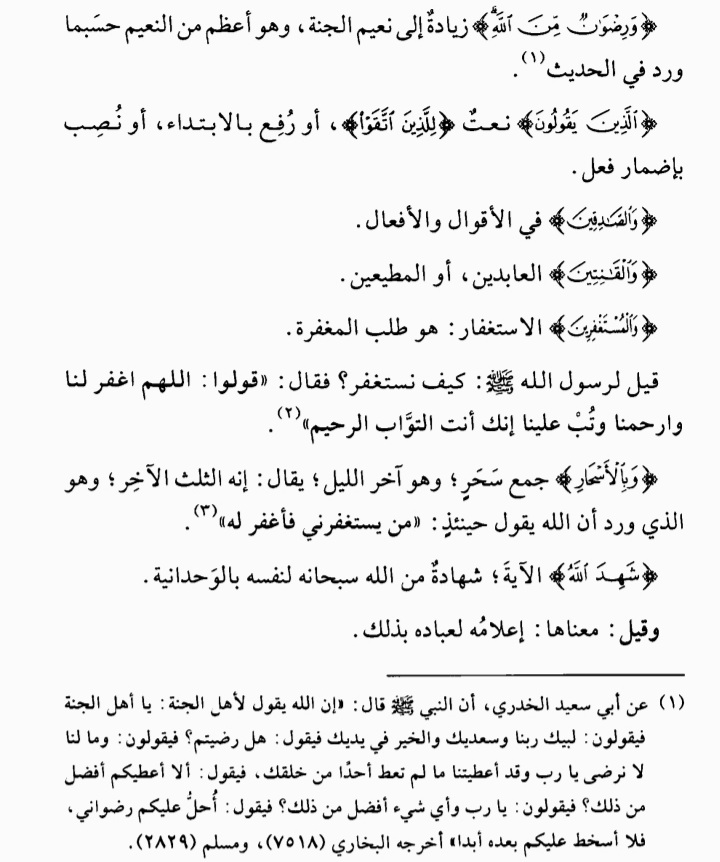 ﴿وَرِضْوَٰنٌ مِّنَ ٱللَّهِ﴾ زيادةٌ إلى نعيم الجنة، وهو أعظم من النعيم حسَبما
ورد في الحديث(١).
﴿ٱلَّذِينَ يَقُولُونَ﴾ نعتٌ ﴿لِلَّذِينَ ٱتَّقَوْا۟﴾، أو رُفِع بالابتداء، أو نُصِب
بإضمار فعل.
﴿وَٱلصَّـٰدِقِينَ﴾ في الأقوال والأفعال.
﴿وَٱلْقَـٰنِتِينَ﴾ العابدين، أو المطيعين.
﴿وَٱلْمُسْتَغْفِرِينَ﴾ الاستغفار: هو طلب المغفرة.
قيل لرسول الله ﷺ: كيف نستغفر؟ فقال: «قولوا: اللهم اغفر لنا
وارحمنا وتُبْ علينا إنك أنت التوَّاب الرحيم»(٢).
﴿وَبِٱلْأَسْحَارِ﴾ جمع سَحَرٍ؛ وهو آخر الليل؛ يقال: إنه الثلث الآخِر؛ وهو
الذي ورد أن الله يقول حينئذٍ: «من يستغفرني فأغفر له»(٣).
﴿شَهِدَ ٱللَّهُ﴾ الآيةَ؛ شهادةٌ من الله سبحانه لنفسه بالوَحدانية.
وقيل: معناها: إعلامُه لعباده بذلك.
(١) عن أبي سعيد الخدري، أن النبي ﷺ قال: «إن الله يقول لأهل الجنة: يا أهل الجنة
فيقولون: لبيك ربنا وسعديك والخير في يديك فيقول: هل رضيتم؟ فيقولون: وما لنا
لا نرضى يا رب وقد أعطيتنا ما لم تعط أحدًا من خلقك، فيقول: ألا أعطيكم أفضل
من ذلك؟ فيقولون: يا رب وأي شيء أفضل من ذلك؟ فيقول: أُحلُّ عليكم رضواني،
فلا أسخط عليكم بعده أبدا» أخرجه البخاري (٧٥١٨)، ومسلم (٢٨٢٩).